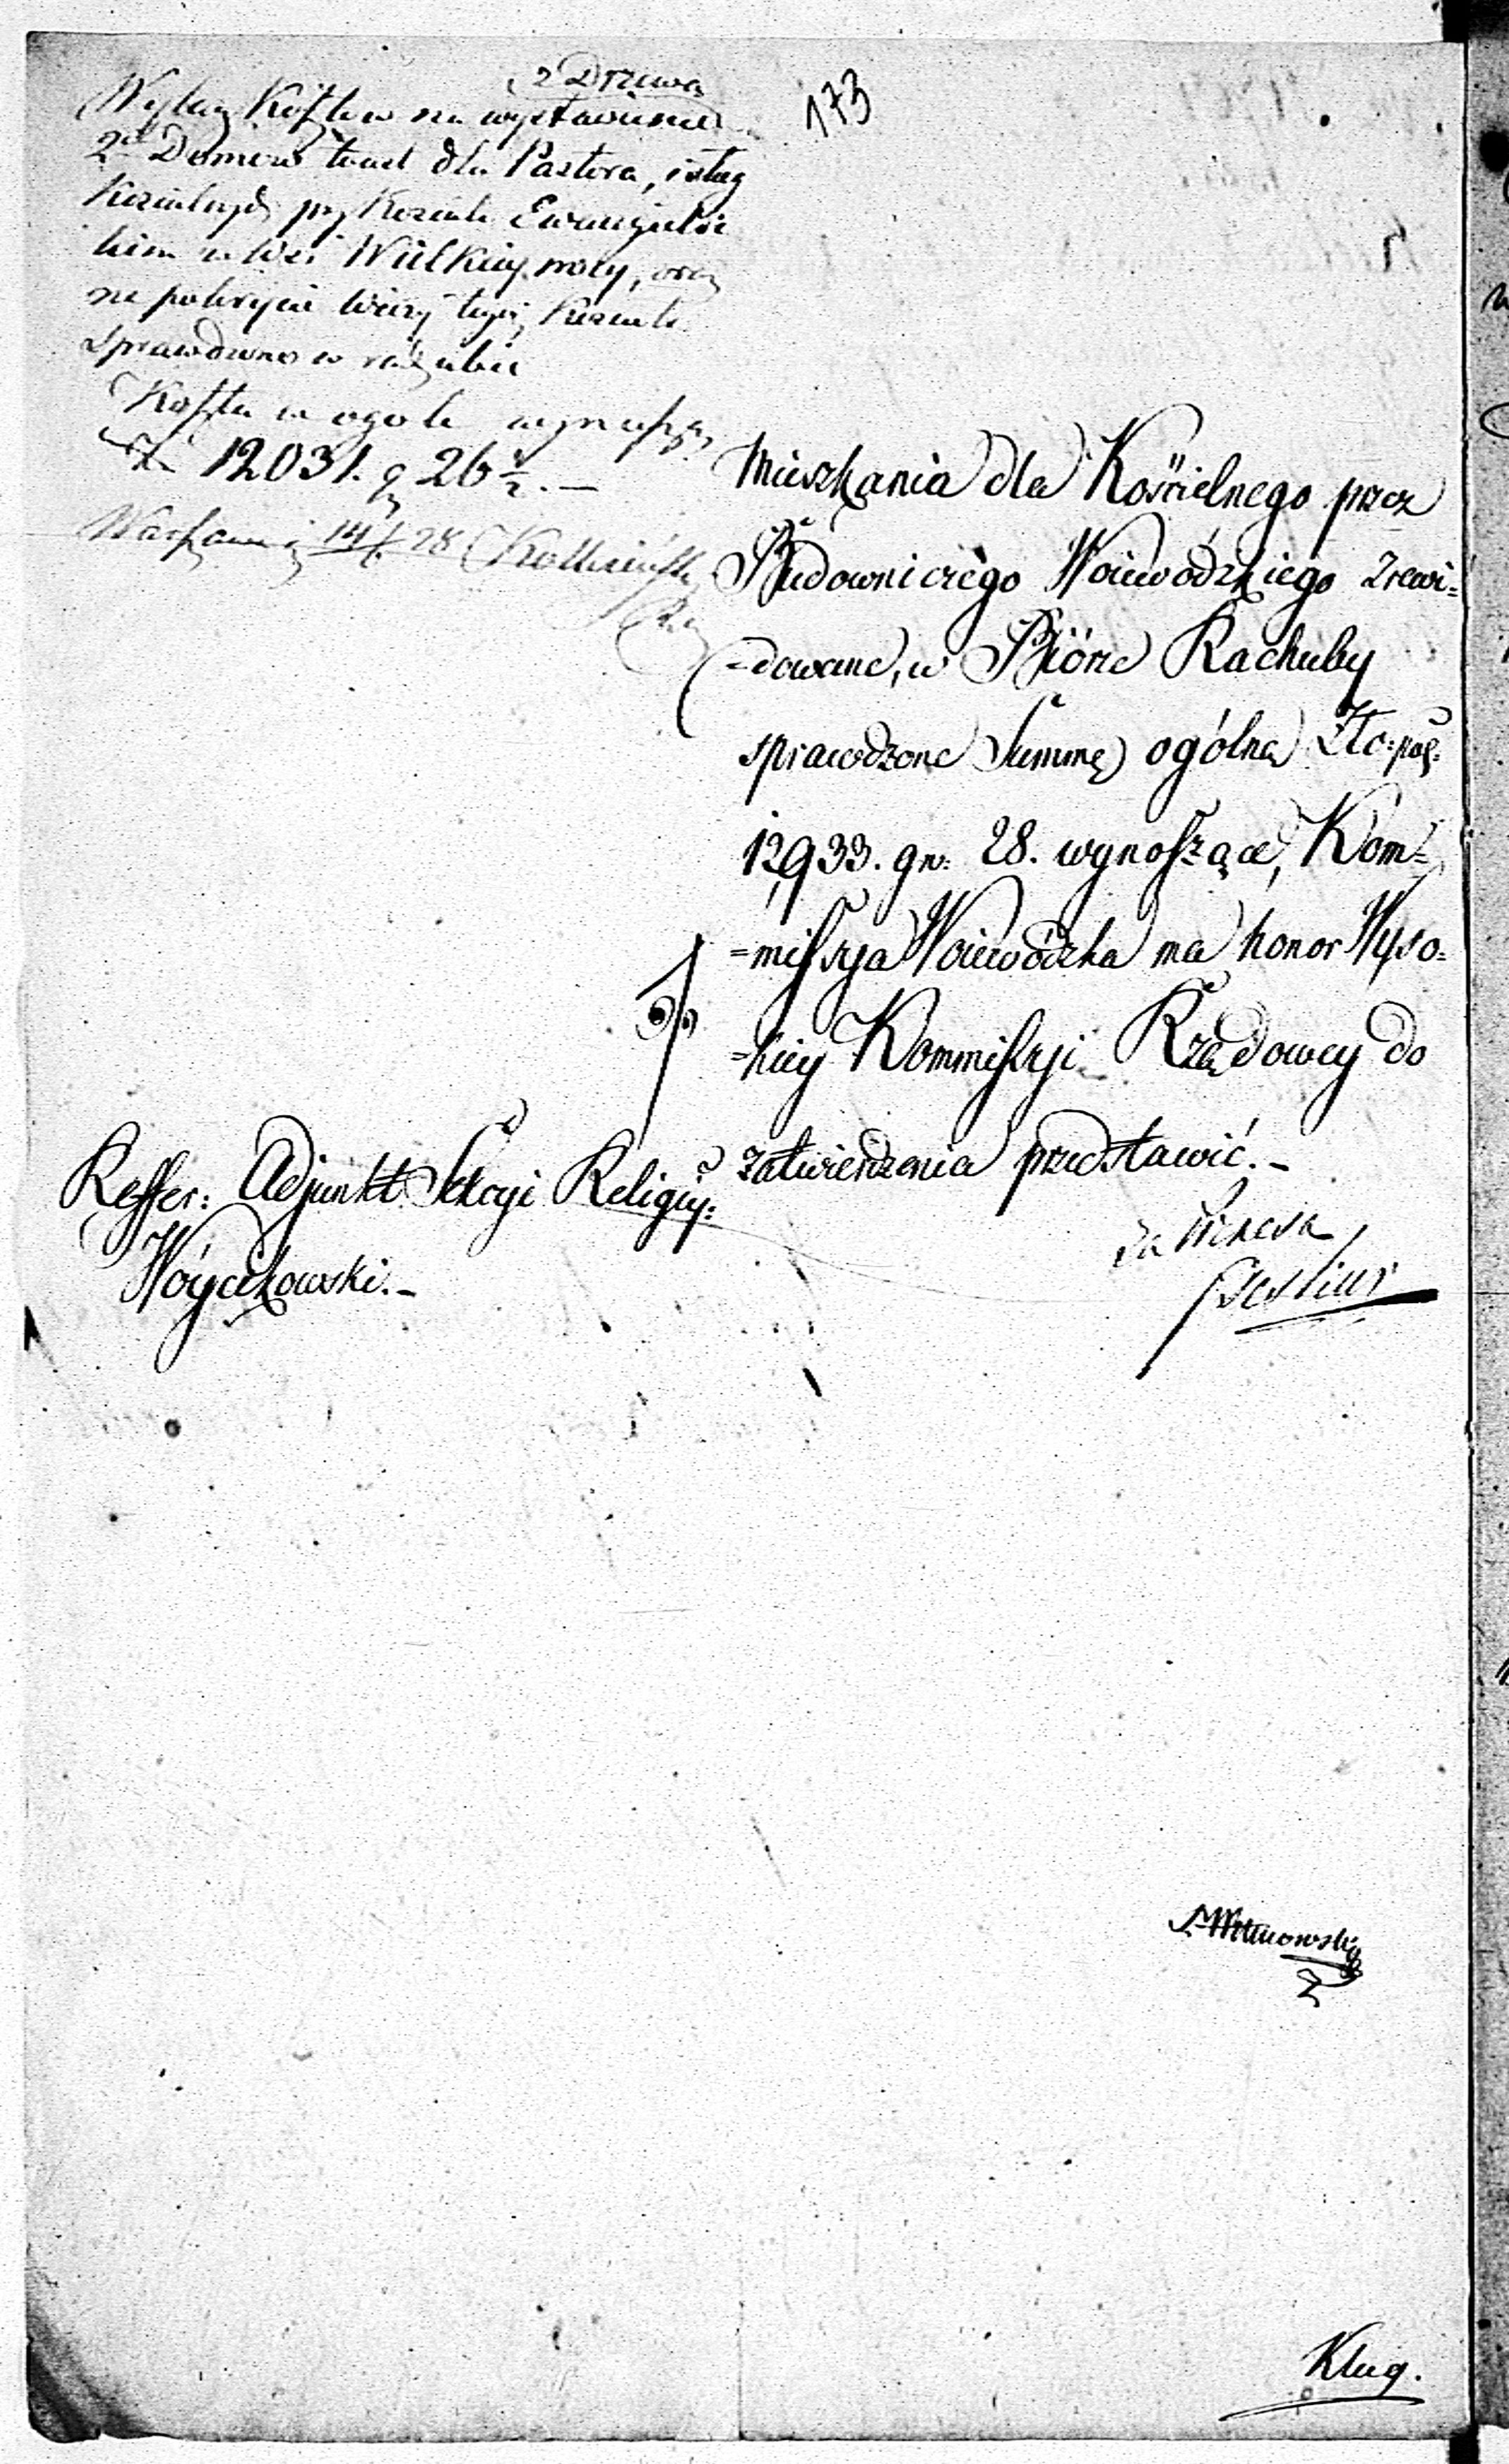 173
z Drzewa
Wykaz Kosztow na wystawienie
2ch Domow to iest dla Pastora, i sług
Koscielnych przy Kosciele Ewangielic
kim we Wsi Wielkiey, oraz
na pokrycie Wieży tegoż Koscioła
sprawdzono w rachubie
Koszta w ogole wynoszą
Zł 12031. g 26½. —
Warszawa 28
Mieszkania dla Kościelnego przez
Budowniczego Woiewódzkiego zrewi=
=dowane, w Biórze Rachuby
sprawdzone Summę ogólną Zło: pol:
12,933. gr: 28. wynoszące, Kom=
=missya Woiewódzka ma honor Wyso=
=kiey Kommissyi Rządowey do
zatwierdzenia przedstawić. –
Reffer: Adjunkt Sekcyi Religiy:
Wóycikowski. –
za Prezesa
Klug.